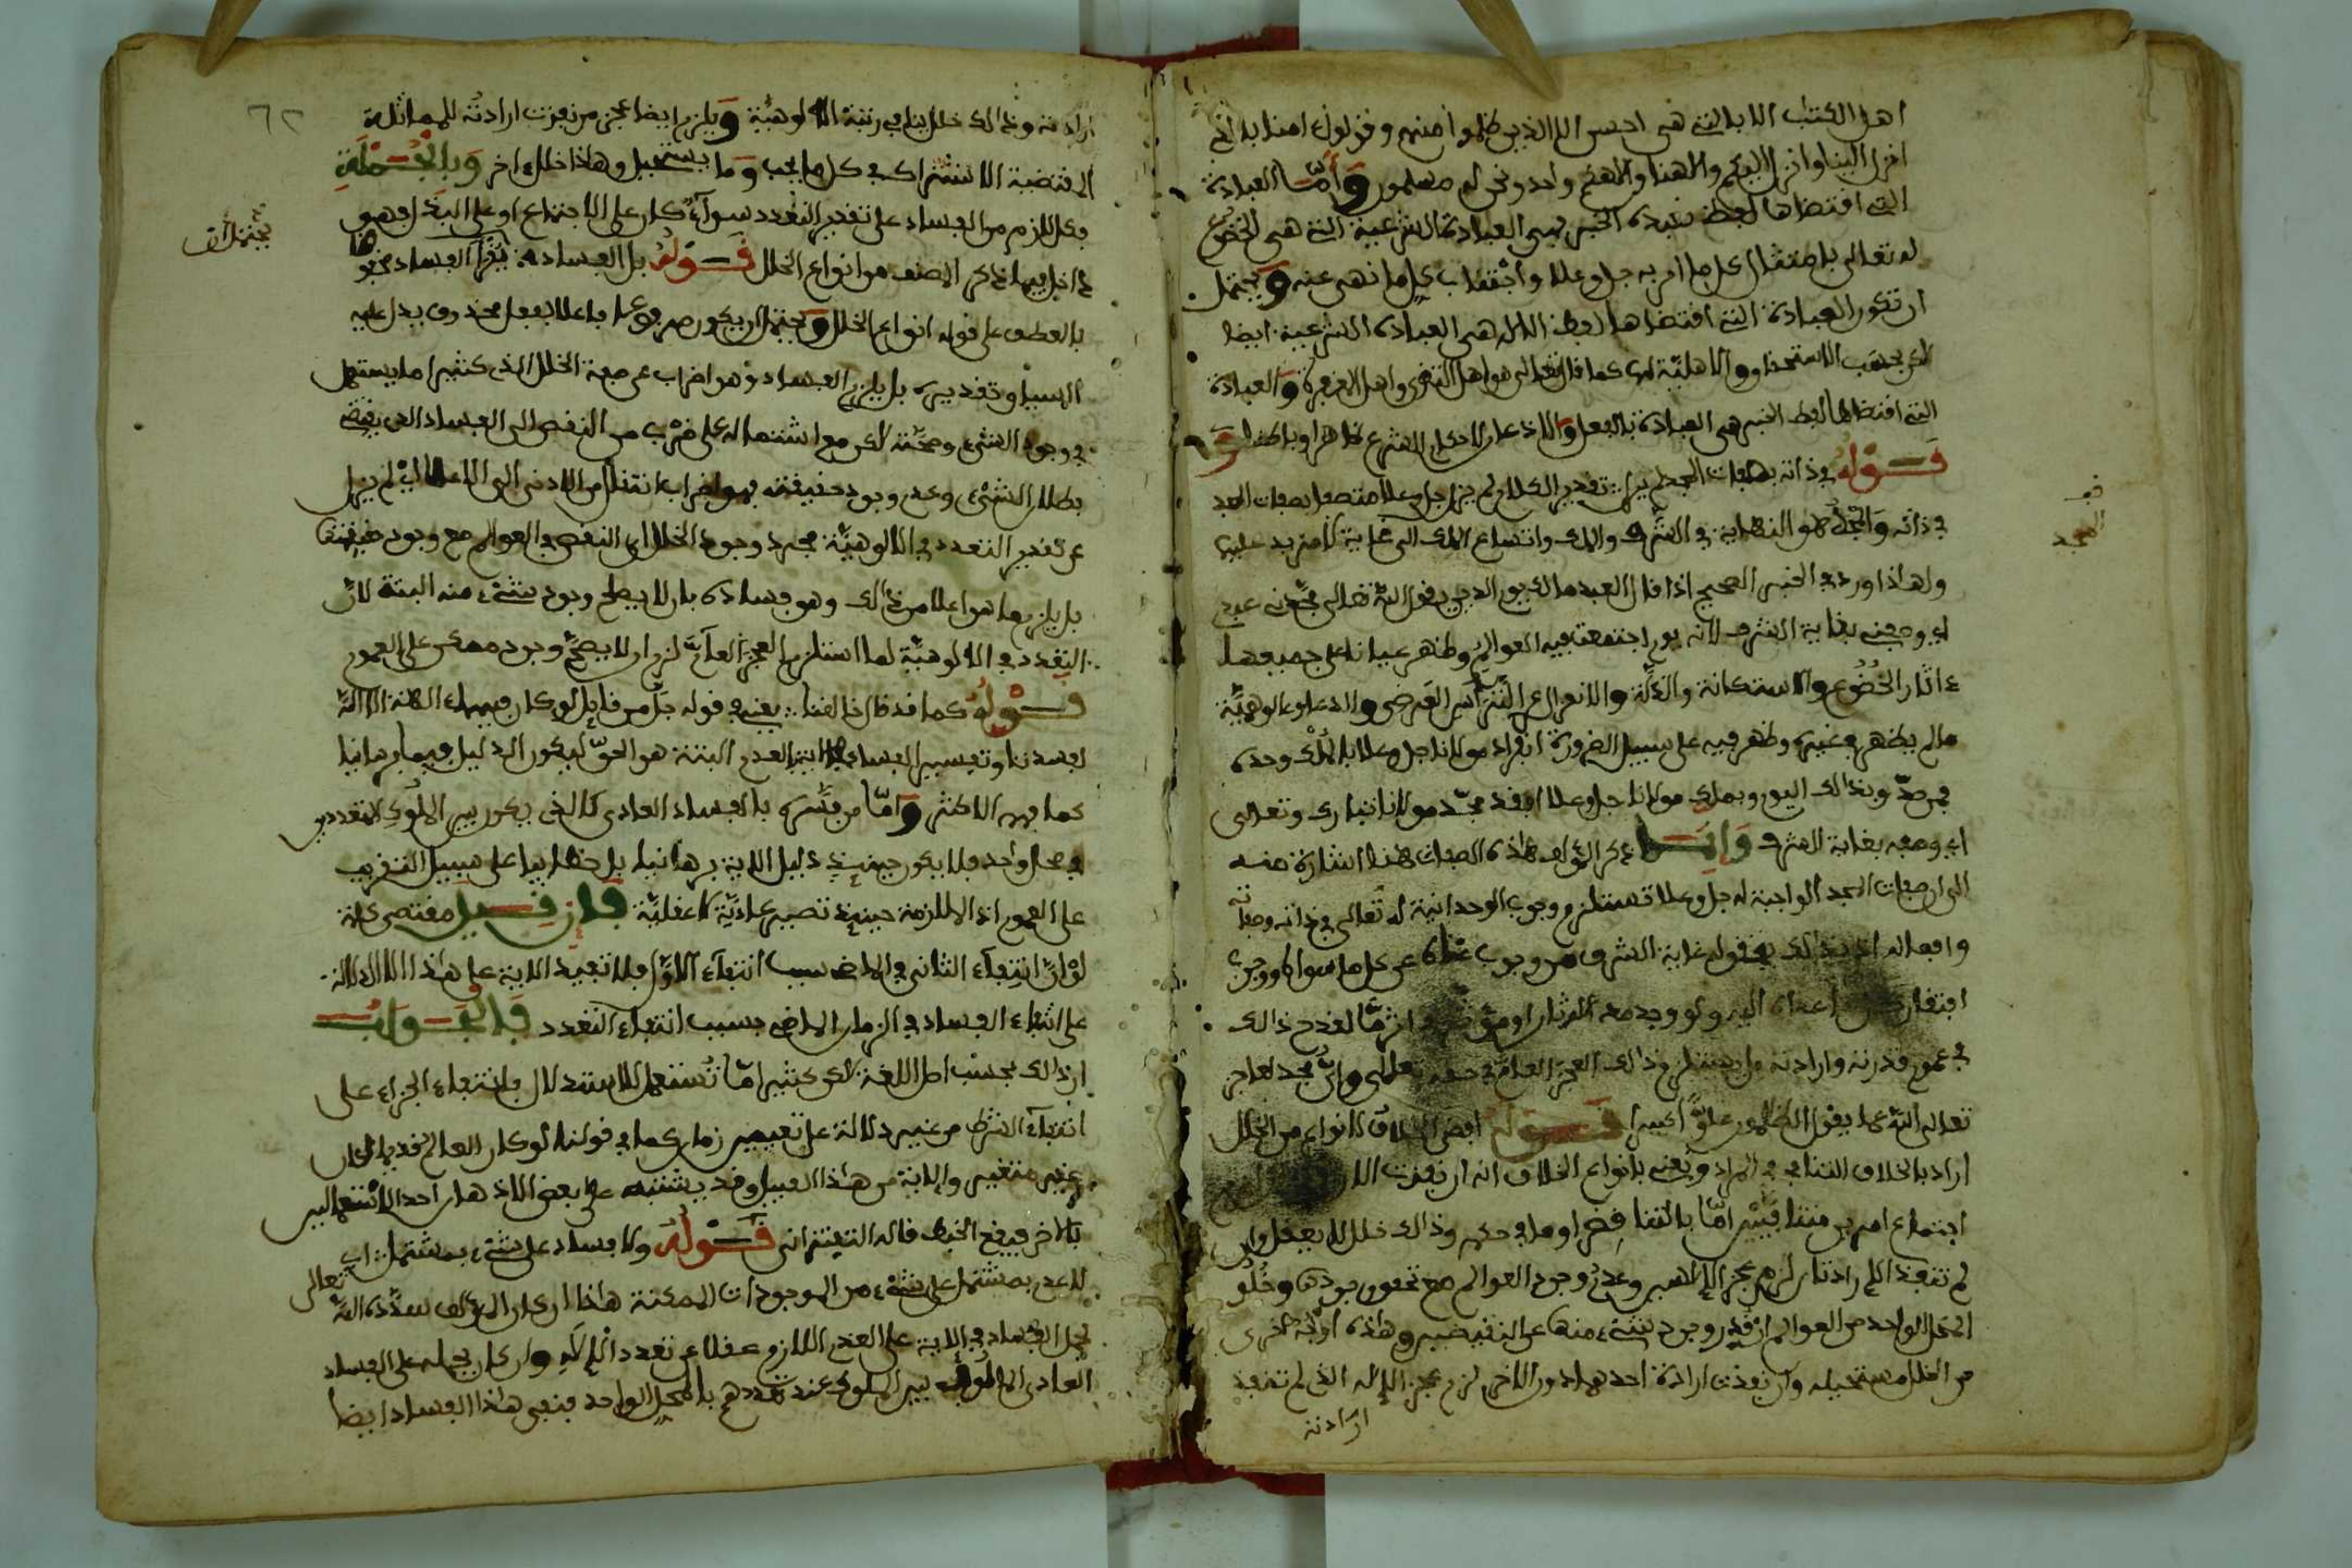 اهل الكتب الا بالتي هي احسن الا الذين ظلموا منهم وقولوا امنا بالذي
انزل الينا وانزل اليكم والاهنا والاهكم واحد ونحن له مسلمون وَأَمّا العبادة
التي اقتضاها لفظ الخبر فهي العبادة الشرعية التي هي الخضوع
له تعالى بامتثال كل ما امر به جل وعلا واجْتناب كل ما نهى عنه وَيحتمل
ان تكون العبادة التي اقتضاها لفظ الاله هي العبادة الشرعية ايضا
لكن بحسَب الاستحقاق والاهليّة كما قال تعالى هو اهل التقوى واهل المغفرة وَالعبادة
التي اقتضاها لفظ الخبر هي العبادة بالفعل والاذعان لاحكام الشرع ظاهرا وباطنا
قَـوْلُهُ في ذاته بصفات المجد تقدير الكلام لم يزل جل وعلا متصفا بصفات المجد
في ذاته وَالْمجْدُ هو النهاية في الشرف والملك واتساع الملك الى غاية لا مزيد عليها
ولهاذا ورد في الخبر الصحيح اذا قال العبد مالك يوم الدين يقول اللّه تعالى مجّدني عبدي
اي وصفني بغاية الشرف لانه يوم اجتمعت فيه العوالم وظهر عيانا على جميعها
ءاثار الخُضُوع والاستكانة والذلّة والانعزال عن التّرَاس العَرضي والادعاء الوهميّة
مالم يظهر في غيره وظهر فيه على سبيل الضرورة انفراد مولانا جل وعلا بالملْك وحده
فمن صدّق بذالك اليوم وبملك مولانا جل وعلا فقد مجّد مولانا تبارك وتعالى
اي وصفه بغاية الشرف وَإِنَّـما ذكر المؤلف هاذه الصفات هنا اشارة منه
الى ان صفات المجد الواجبة له جل وعلا تستلزم وجوب الوحدانية له تعالى في ذاته وصفاته
وافعاله اذ بذالك يتم قوله غاية الشرف من وجوب غناه عن كل ما سواه ووجوب
افتقار كل ما عداه اليه ولو وجد معه اله ثان او مؤثر في اثر مّا لقدح ذالك
في عموم قدرته وارادته ويستلزم ذالك العجز العام في حقه تعالى وايّ مجد لعاجز
تعالى اللّه عما يقول الظالمون علوًّا كبيرا قَـوْلُهُ افضى الخلاف لانواع من الخلل
اراد بالخلاف التنافي في المراد ويعني بانواع الخلاف انه ان نفذت
اجتماع امرين متنافيَيْن امّا بالتناقض او ما في حكمه وذالك خلل لا يعقل وان
لم تنفذ الارادتان لزم عجز الالاهين وعدم وجود العوالم مع تحقق وجودها وخُلُو
المحل الواحد من العوالم ان قدر وجود شيء منها عن النقيضين وهاذه اوجه اخرى
من الخلل مستحيلة وان نفذت ارادة احدهما دون الاخر لزم عجز الالاه الذي لم تنفذ
ارادته
قف
المجد
٦٢
ارادته وذالك خلل ينافي رتبة الالوهيّة وَيلزم ايضا عجز من نفذت ارادته للمماثلة
المقتضية الاشتراك في كل ما يجب وَما يستحيل وهاذا خلل ءاخر وَبِالْجُـمْلَةِ
فكل لازم من الفساد على تقدير التعدد سوآء كان على الاجتماع او على البدل فهو
داخل فيما ذكر المصنف من انواع الخلل قَـوْلُهُ بل الفساد يُقرأ الفساد مخفوضا
بالعطف على قوله انواع الخلل وَيحتمل ان يكون مرفوعا فاعلا بفعل محذوف يدل عليه
السياق وتقديره بل يلزم الفساد وهو اضراب عن صفة الخلل الذي كثيرا ما يستعمل
في وجود الشيء وصحّته لكن مع اشتماله على ضرْب من النقص الى الفساد الذي يقتضي
بطلان الشيء وعدم وجود حقيقته فهو اضراب انتقال من الادنى الى الاعلى اي لم يزل
عن تقدير التعدد في الالوهيّة مجرد وجود الخلل اي النقص في العوالم مع وجود حقيقتها
بل يلزم ما هو اعلا من ذالك وهو فساده بان لا يصح وجود شيء منه البتة لانّ
التعدد في الالوهيّة لما استلزم العجز العآمّ لزم ان لا يصحّ وجود ممكن على العموم
قَـوْلُهُ كما قد قال خالقنا يعني في قوله جلّ من قايل لو كان فيهما ءالهة الا اللّه
لفسدتا وتفسير الفساد في الاية بالعدم البتة هو الحقّ ليكون الدليل فيها برهانيا
كما فهمه الاكثر وَامّا من فسّره بالفساد العادي كالذي يكون بين الملوك المتعددين
في محل واحد فلا يكون حينئذ دليل الاية برهانيا بل خطابيا على سبيل التقريب
على العموم اذ الملازمة حينئذ تصير عاديّة لا عقليّة فَـإِن قِـيـلَ مقتضى دلالة
لوْ انّ انتفآء الثاني في الماضي بسبب انتفآء الاوّل فلا تفيد الاية على هاذا الا الدلالة
على انتفاء الفساد في الزمان الماضي بسبب انتفاء التعدد فَـالْجَـوَابُ
ان ذالك بحسَب اصل اللغة لكن كثيرا مّا تُستعمل للاستدلال بانتفاء الجزاء على
انتفآء الشرط من غير دلالة على تعيين زمان كما في قولنا لو كان العالم قديما لكان
غير متغير والاية من هاذا القبيل وقد يشتبه على بعض الاذهان احد الاستعمالين
بالاخر فيقع الخبط قاله التفتزاني قَـوْلُهُ ولا فساد على شيء بمشتمل اي
لا عدم بمشتمل على شيء من الموجودات الممكنة هاذا ان كان المؤلف سدّده اللّه تعالى
يحمل الفساد في الاية على العدم اللازم عقلا عن تعدد الالاه وان كان يحمله على الفساد
العادي المالوف بين الملوك عند تعددهم بالمحل الواحد فنفي هاذا الفساد ايضا